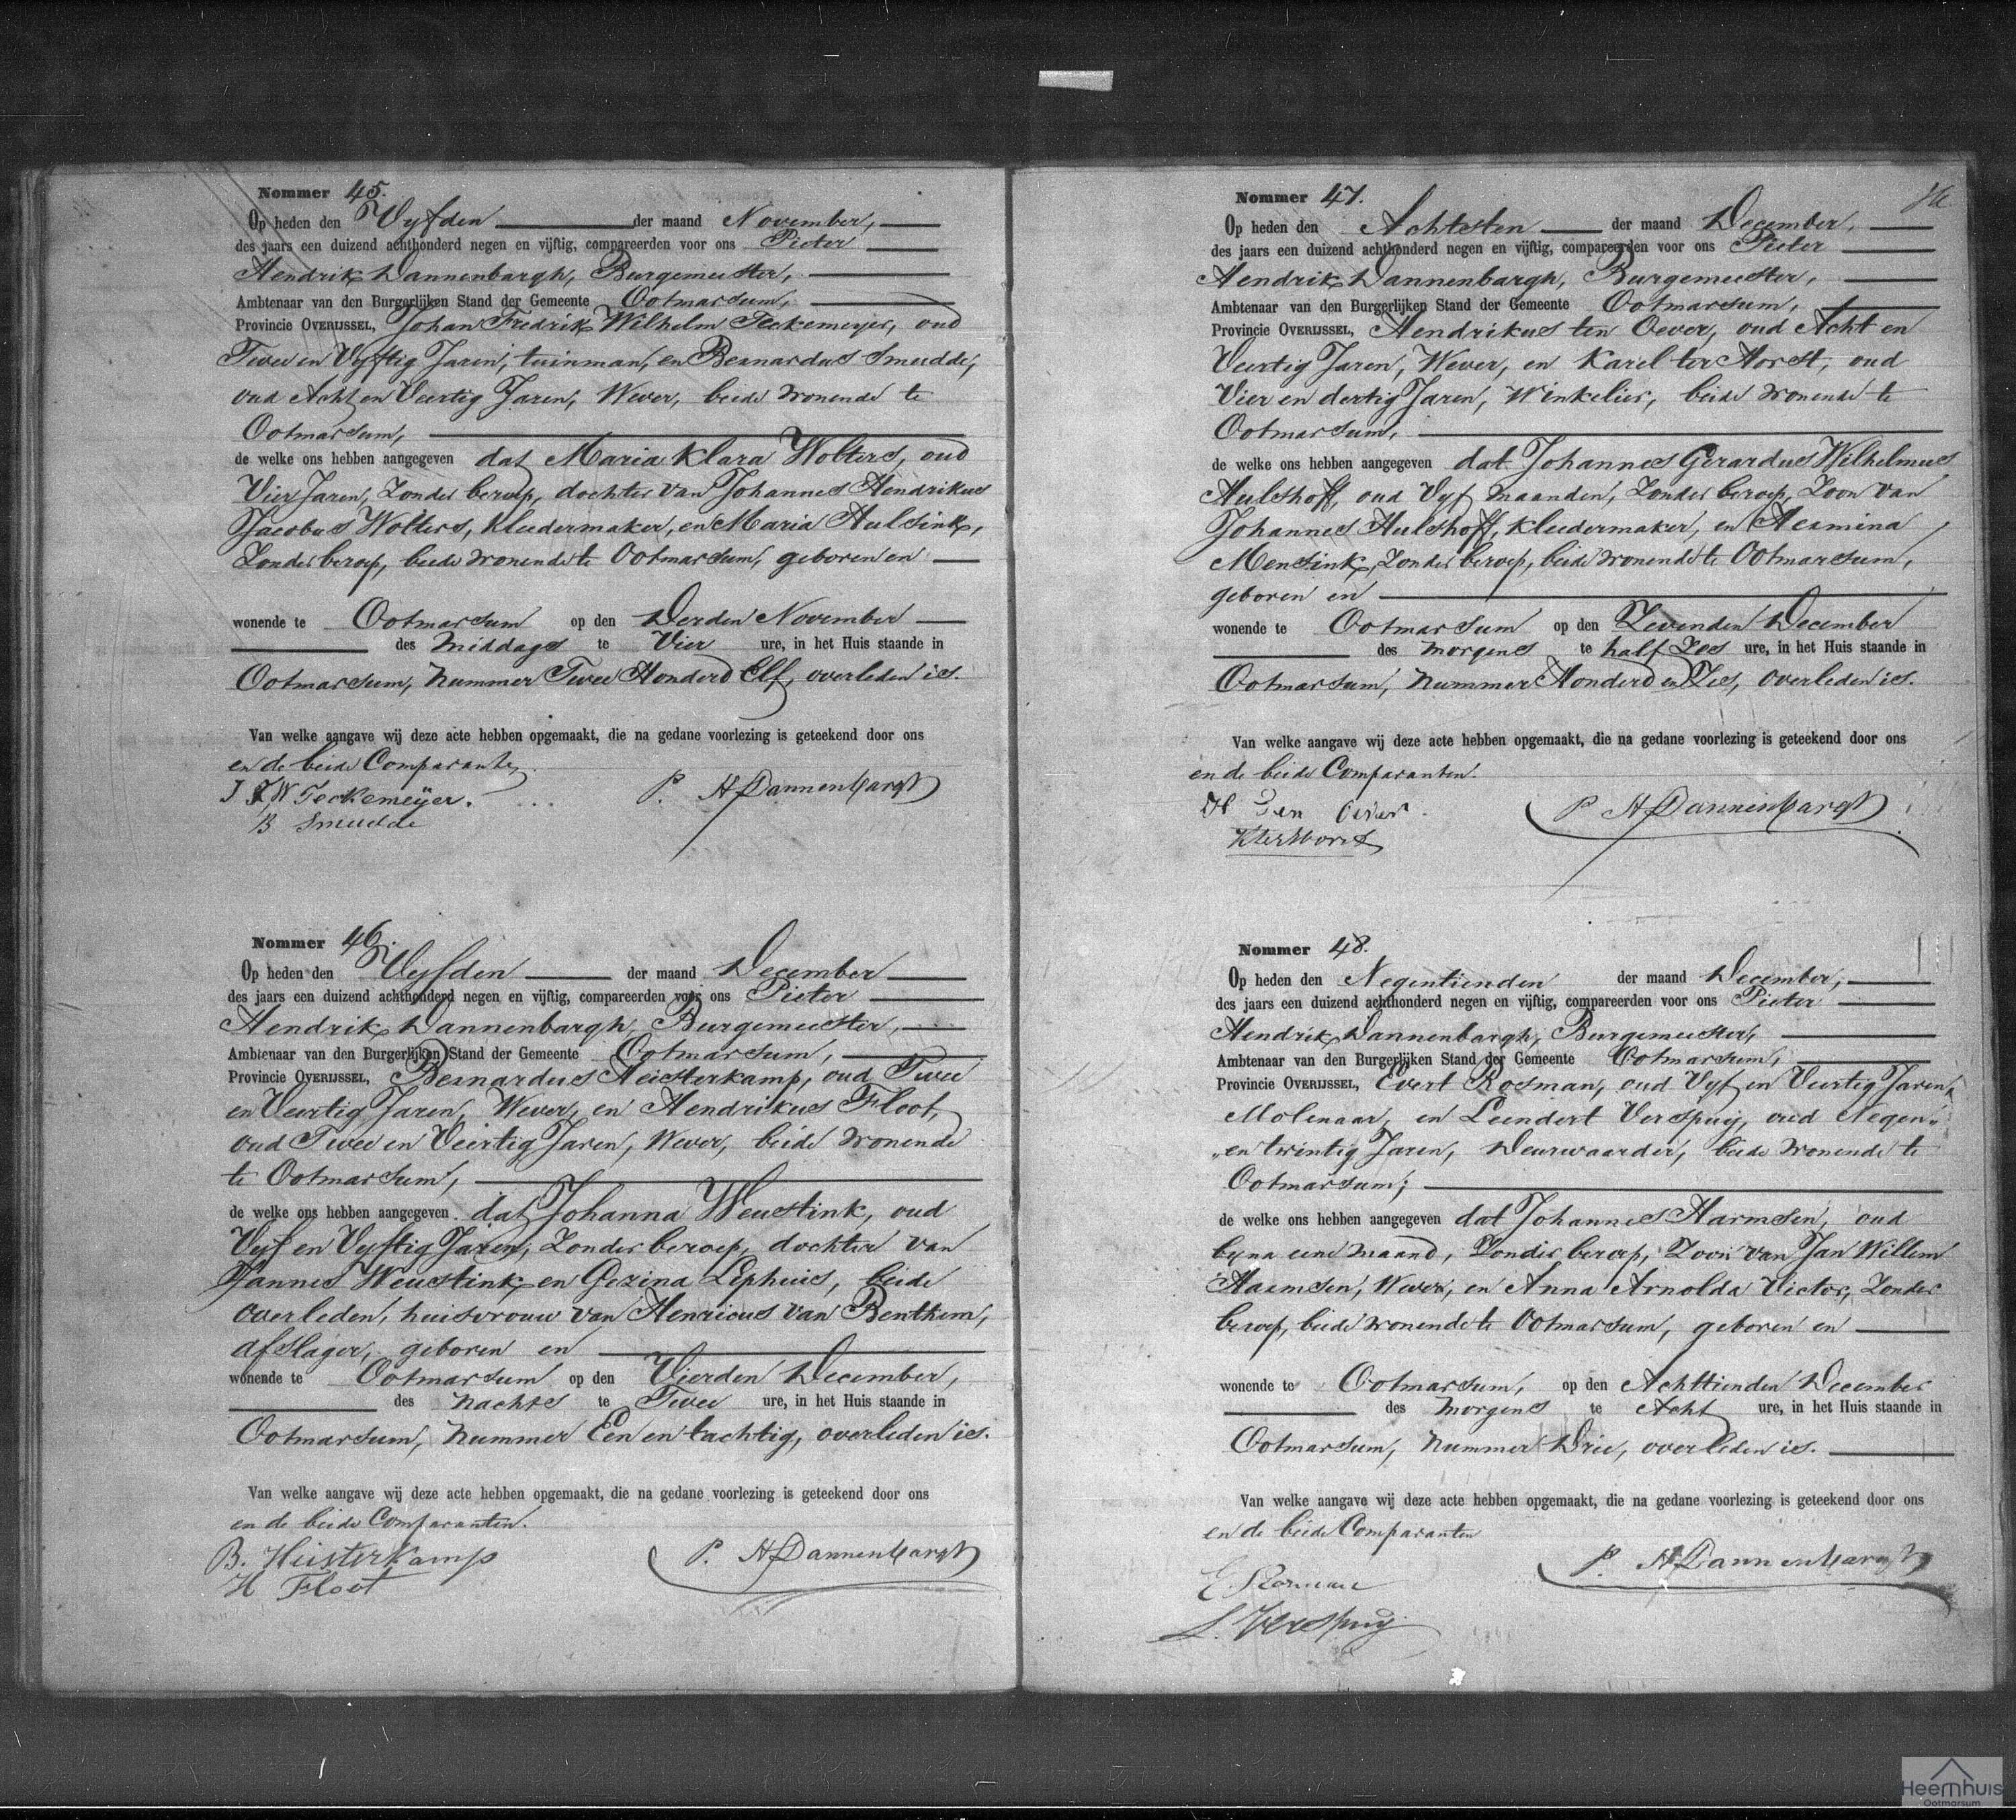 Nommer 45.
Op heden den Vijfden der maand November,
des jaars een duizend achthonderd negen en vijftig, compareerden voor ons Pieter
Hendrik Dannenbargh, Burgemeester,
Ambtenaar van den Burgerlijken Stand der Gemeente Ootmarsum,
Provincie OVERIJSSEL, Johan Fredrik Wilhelm Teckemeyer, oud
Twee en Vyftig Jaren, tuinman, en Bernardus Smudde,
oud Acht en Veertig Jaren, Wever, beide wonende te
Ootmarsum,
de welke ons hebben aangegeven dat Maria Klara Wolters, oud
Vier Jaren, Zonder beroep, dochter van Johannes Hendrikus
Jacobus Wolters, Kleedermaker, en Maria Hulsink,
Zonder beroep, beide wonende te Ootmarsum, geboren en
wonende te Ootmarsum op den Derden November
des Middags te Vier ure, in het Huis staande in
Ootmarsum, Nummer Twee Honderd Elf, overleden is.
Van welke aangave wij deze acte hebben opgemaakt, die na gedane voorlezing is geteekend door ons
en de beide Comparanten.
J F W Teckemeÿer. P. H Dannenbargh
B Smudde
Nommer 46.
Op heden den Vijfden der maand December
des jaars een duizend achthonderd negen en vijftig, compareerden voor ons Pieter
Hendrik Dannenbargh, Burgemeester,
Ambtenaar van den Burgerlijken Stand der Gemeente Ootmarsum,
Provincie OVERIJSSEL, Bernardus Heisterkamp, oud Twee
en Veertig Jaren, Wever, en Hendrikus Floot,
oud Twee en Veertig Jaren, Wever, beide wonende
te Ootmarsum,
de welke ons hebben aangegeven dat Johanna Weustink, oud
Vyf en Vyftig Jaren, Zonder beroep, dochter van
Jannes Weustink en Gezina Liphuis, beide
overleden, huisvrouw van Henricus van Benthem,
afslager, geboren en
wonende te Ootmarsum op den Vierden December,
des Nachts te Twee ure, in het Huis staande in
Ootmarsum, Nummer Een en tachtig, overleden is.
Van welke aangave wij deze acte hebben opgemaakt, die na gedane voorlezing is geteekend door ons
en de beide Comparanten.
B. Heisterkamp P. H Dannenbargh
H Floot
Nommer 47.
Op heden den Achtsten der maand December,
des jaars een duizend achthonderd negen en vijftig, compareerden voor ons Pieter
Hendrik Dannenbargh, Burgemeester,
Ambtenaar van den Burgerlijken Stand der Gemeente Ootmarsum,
Provincie OVERIJSSEL, Hendrikus ten Oever, oud Acht en
Veertig Jaren, Wever, en Karel ter Horst, oud
Vier en dertig Jaren, Winkelier, beide wonende te
Ootmarsum,
de welke ons hebben aangegeven dat Johannes Gerardus Wilhelmus
Hulshoff, oud Vyf maanden, Zonder beroep, Zoon van
Johannes Hulshoff, Kleedermaker, en Hermina
Mensink, Zonder beroep, beide wonende te Ootmarsum,
geboren en
wonende te Ootmarsum op den Zevenden December
des Morgens te half Zes ure, in het Huis staande in
Ootmarsum, Nummer Honderd en Zes, overleden is.
Van welke aangave wij deze acte hebben opgemaakt, die na gedane voorlezing is geteekend door ons
en de beide Comparanten.
H Ten Oever P H Dannenbargh
K ter Horst
Nommer 48.
Op heden den Negentienden der maand December,
des jaars een duizend achthonderd negen en vijftig, compareerden voor ons Pieter
Hendrik Dannenbargh, Burgemeester,
Ambtenaar van den Burgerlijken Stand der Gemeente Ootmarsum,
Provincie OVERIJSSEL, Evert Rosman, oud Vyf en Veertig Jaren,
Molenaar, en Leendert Verspuy, oud Negen„
„en twintig Jaren, Deurwaarder, beide wonende te
Ootmarsum;
de welke ons hebben aangegeven dat Johannes Harmsen, oud
byna eene maand, Zonder beroep, Zoon van Jan Willem
Harmsen, Wever, en Anna Arnolda Victor, Zonder
beroep, beide wonende te Ootmarsum, geboren en
wonende te Ootmarsum, op den Achttienden December
des Morgens te Acht ure, in het Huis staande in
Ootmarsum, Nummer Drie, overleden is.
Van welke aangave wij deze acte hebben opgemaakt, die na gedane voorlezing is geteekend door ons
en de beide Comparanten
E Rosman P. H Dannenbargh
L. Verspuy
Heemhuis
Ootmarsum